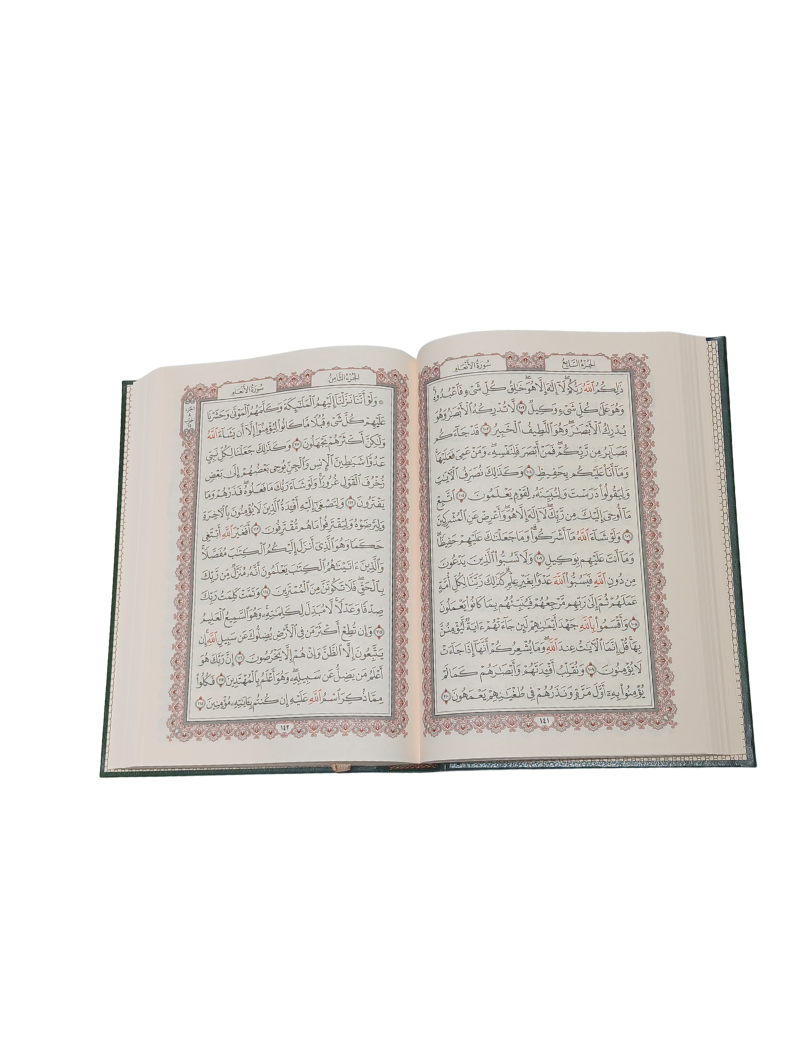 الجزء السابع
سورة الأنعام
ذَٰلِكُمُ ٱللَّهُ رَبُّكُمْ لَآ إِلَٰهَ إِلَّا هُوَ خَٰلِقُ كُلِّ شَىْءٍ فَٱعْبُدُوهُ
وَهُوَ عَلَىٰ كُلِّ شَىْءٍ وَكِيلٌ ١٠٢ لَّا تُدْرِكُهُ ٱلْأَبْصَٰرُ وَهُوَ
يُدْرِكُ ٱلْأَبْصَٰرَ وَهُوَ ٱللَّطِيفُ ٱلْخَبِيرُ ١٠٣ قَدْ جَآءَكُم
بَصَآئِرُ مِن رَّبِّكُمْ فَمَنْ أَبْصَرَ فَلِنَفْسِهِۦ وَمَنْ عَمِىَ فَعَلَيْهَا
وَمَآ أَنَا۠ عَلَيْكُم بِحَفِيظٍ ١٠٤ وَكَذَٰلِكَ نُصَرِّفُ ٱلْءَايَٰتِ
وَلِيَقُولُوا۟ دَرَسْتَ وَلِنُبَيِّنَهُۥ لِقَوْمٍ يَعْلَمُونَ ١٠٥ ٱتَّبِعْ
مَآ أُوحِىَ إِلَيْكَ مِن رَّبِّكَ لَآ إِلَٰهَ إِلَّا هُوَ وَأَعْرِضْ عَنِ ٱلْمُشْرِكِينَ
١٠٦ وَلَوْ شَآءَ ٱللَّهُ مَآ أَشْرَكُوا۟ وَمَا جَعَلْنَٰكَ عَلَيْهِمْ حَفِيظًا
وَمَآ أَنتَ عَلَيْهِم بِوَكِيلٍ ١٠٧ وَلَا تَسُبُّوا۟ ٱلَّذِينَ يَدْعُونَ
مِن دُونِ ٱللَّهِ فَيَسُبُّوا۟ ٱللَّهَ عَدْوًۢا بِغَيْرِ عِلْمٍ كَذَٰلِكَ زَيَّنَّا لِكُلِّ أُمَّةٍ
عَمَلَهُمْ ثُمَّ إِلَىٰ رَبِّهِم مَّرْجِعُهُمْ فَيُنَبِّئُهُم بِمَا كَانُوا۟ يَعْمَلُونَ
١٠٨ وَأَقْسَمُوا۟ بِٱللَّهِ جَهْدَ أَيْمَٰنِهِمْ لَئِن جَآءَتْهُمْ ءَايَةٌ لَّيُؤْمِنُنَّ
بِهَا قُلْ إِنَّمَا ٱلْءَايَٰتُ عِندَ ٱللَّهِ وَمَا يُشْعِرُكُمْ أَنَّهَآ إِذَا جَآءَتْ
لَا يُؤْمِنُونَ ١٠٩ وَنُقَلِّبُ أَفْـِٔدَتَهُمْ وَأَبْصَٰرَهُمْ كَمَا لَمْ
يُؤْمِنُوا۟ بِهِۦٓ أَوَّلَ مَرَّةٍ وَنَذَرُهُمْ فِى طُغْيَٰنِهِمْ يَعْمَهُونَ ١١٠
١٤١
الجزء الثامن
سورة الأنعام
۞ وَلَوْ أَنَّنَا نَزَّلْنَآ إِلَيْهِمُ ٱلْمَلَٰٓئِكَةَ وَكَلَّمَهُمُ ٱلْمَوْتَىٰ وَحَشَرْنَا
عَلَيْهِمْ كُلَّ شَىْءٍ قُبُلًا مَّا كَانُوا۟ لِيُؤْمِنُوٓا۟ إِلَّآ أَن يَشَآءَ ٱللَّهُ
وَلَٰكِنَّ أَكْثَرَهُمْ يَجْهَلُونَ ١١١ وَكَذَٰلِكَ جَعَلْنَا لِكُلِّ نَبِىٍّ
عَدُوًّا شَيَٰطِينَ ٱلْإِنسِ وَٱلْجِنِّ يُوحِى بَعْضُهُمْ إِلَىٰ بَعْضٍ
زُخْرُفَ ٱلْقَوْلِ غُرُورًا وَلَوْ شَآءَ رَبُّكَ مَا فَعَلُوهُ فَذَرْهُمْ وَمَا
يَفْتَرُونَ ١١٢ وَلِتَصْغَىٰٓ إِلَيْهِ أَفْـِٔدَةُ ٱلَّذِينَ لَا يُؤْمِنُونَ بِٱلْءَاخِرَةِ
وَلِيَرْضَوْهُ وَلِيَقْتَرِفُوا۟ مَا هُم مُّقْتَرِفُونَ ١١٣ أَفَغَيْرَ ٱللَّهِ أَبْتَغِى
حَكَمًا وَهُوَ ٱلَّذِىٓ أَنزَلَ إِلَيْكُمُ ٱلْكِتَٰبَ مُفَصَّلًا
وَٱلَّذِينَ ءَاتَيْنَٰهُمُ ٱلْكِتَٰبَ يَعْلَمُونَ أَنَّهُۥ مُنَزَّلٌ مِّن رَّبِّكَ
بِٱلْحَقِّ فَلَا تَكُونَنَّ مِنَ ٱلْمُمْتَرِينَ ١١٤ وَتَمَّتْ كَلِمَتُ رَبِّكَ
صِدْقًا وَعَدْلًا لَّا مُبَدِّلَ لِكَلِمَٰتِهِۦ وَهُوَ ٱلسَّمِيعُ ٱلْعَلِيمُ
١١٥ وَإِن تُطِعْ أَكْثَرَ مَن فِى ٱلْأَرْضِ يُضِلُّوكَ عَن سَبِيلِ ٱللَّهِ إِن
يَتَّبِعُونَ إِلَّا ٱلظَّنَّ وَإِنْ هُمْ إِلَّا يَخْرُصُونَ ١١٦ إِنَّ رَبَّكَ هُوَ
أَعْلَمُ مَن يَضِلُّ عَن سَبِيلِهِۦ وَهُوَ أَعْلَمُ بِٱلْمُهْتَدِينَ ١١٧ فَكُلُوا۟
مِمَّا ذُكِرَ ٱسْمُ ٱللَّهِ عَلَيْهِ إِن كُنتُم بِـَٔايَٰتِهِۦ مُؤْمِنِينَ ١١٨
١٤٢